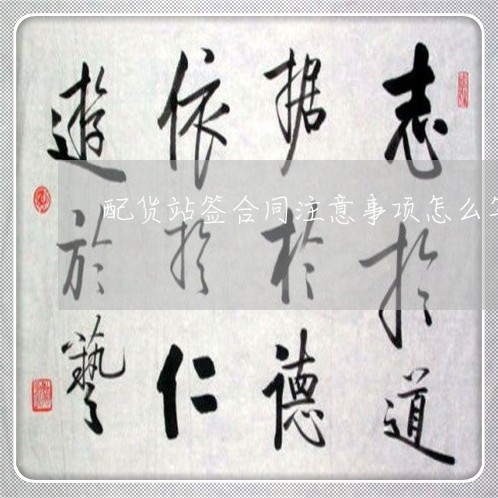 志於道
据於德
依於仁
遊於藝
配货站签合同注意事项怎么